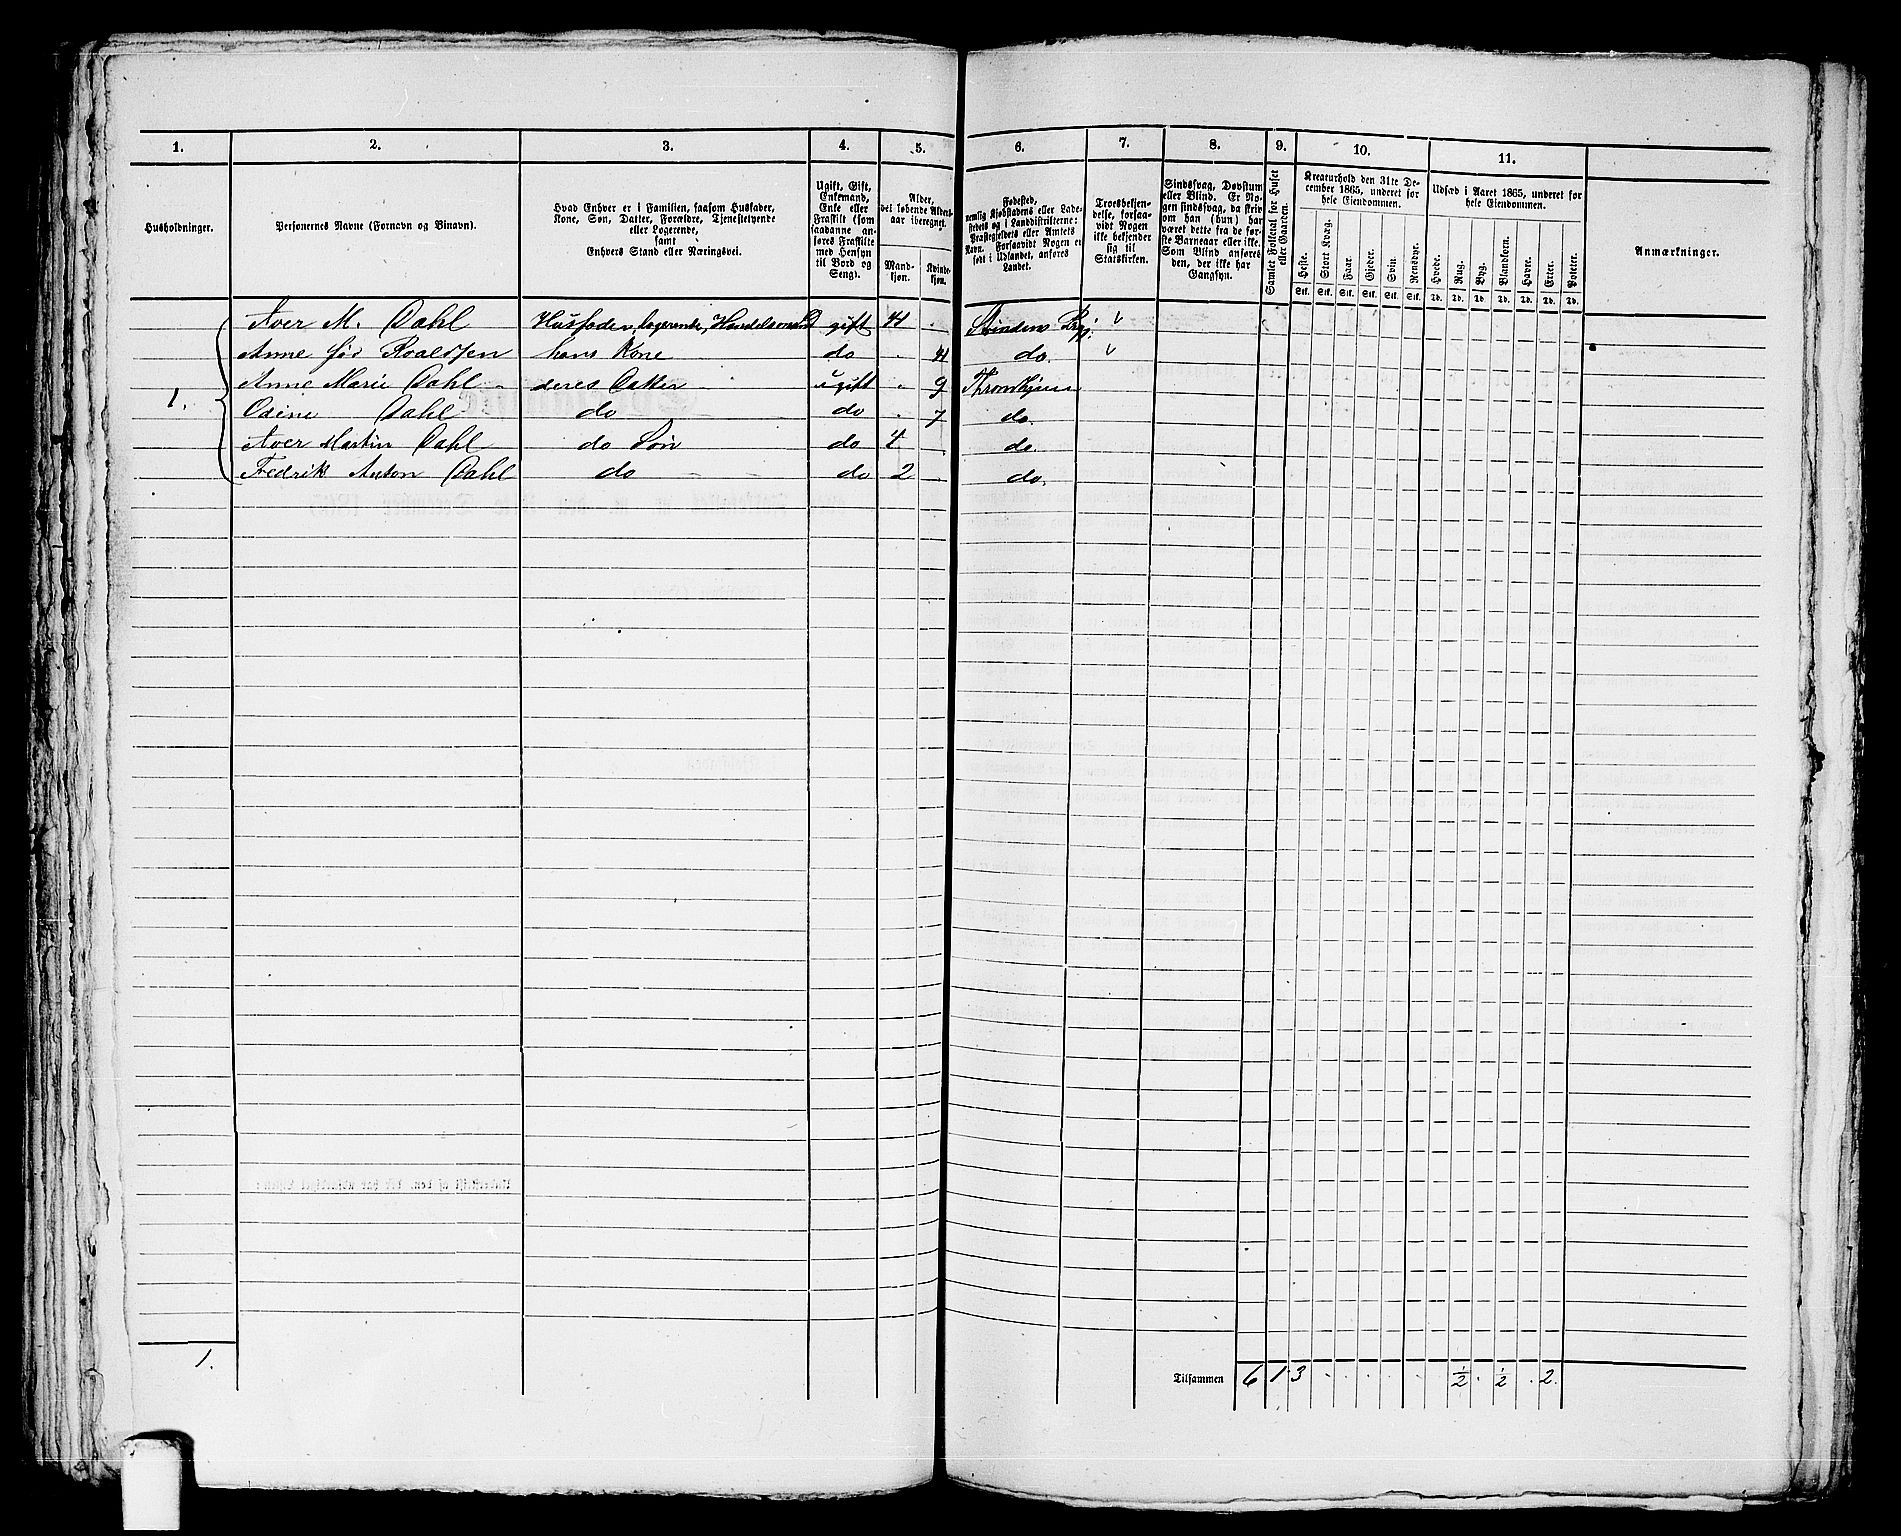 1. 2. 3. 4. 5. 6. 7. 8. 9. 10. 11.
Husholdninger.
Personernes Navne (Fornavn og Binavn).
Hvad Enhver er i Familien, saasom Husfader,
Kone, Søn, Datter, Forældre, Tjenestetyende
eller Logerende,
samt
Enhvers Stand eller Næringsvei.
Ugift, Gift,
Enkemand,
Enke eller
Fraskilt (som
saadanne an-
føres Fraskilte
med Hensyn
til Bord og
Seng).
Alder,
det løbende Alders-
aar iberegnet.
Mand-
kjøn.
Kvinde-
kjøn.
Fødested,
nemlig Kjøbstadens eller Lade-
stedets og i Landdistrikterne:
Præstegjeldets eller Amtets
Navn. Forsaavidt Nogen er
født i Udlandet, anføres
Landet.
Troesbekjen-
delse, forsaa-
vidt Nogen
ikke bekjender
sig til
Statskirken.
Sindssvag, Døvstum
eller Blind. Er No-
gen sindssvag, da skriv
om han (hun) har
været dette fra de før-
ste Barneaar eller ikke.
Som Blind anføres
den, der ikke har
Gangsyn.
Samlet Folketal for Huset
eller Gaarden.
Kreaturhold den 31te De-
cember 1865, underet for
hele Eiendommen.
Heste. Stort Kvæg. Faar. Gjeder. Svin. Rensdyr.
Stk. Stk. Stk. Stk. Stk. Stk.
Udsæd i Aaret 1865, underet for
hele Eiendommen.
Hvede. Rug. Byg. Blandkorn. Havre. Erter. Poteter.
Td. Td. Td. Td. Td. Td. Td.
Anmærkninger.
Iver M. Dahl Husfader, logerende, Handelsmand gift 41 . Strindens Prgj.
Anne fød Roaldsen hans Kone do . 41 do.
Anne Marie Dahl deres Datter ugift . 9 Thronhjem
1.
Odine Dahl do do . 7 do.
Iver Martin Dahl do Søn do 4 . do.
Fredrik Anton Dahl do do 2 . do.
1.
Tilsammen 6 1 3 . . . . . 1/2 . 1/2 . 2.